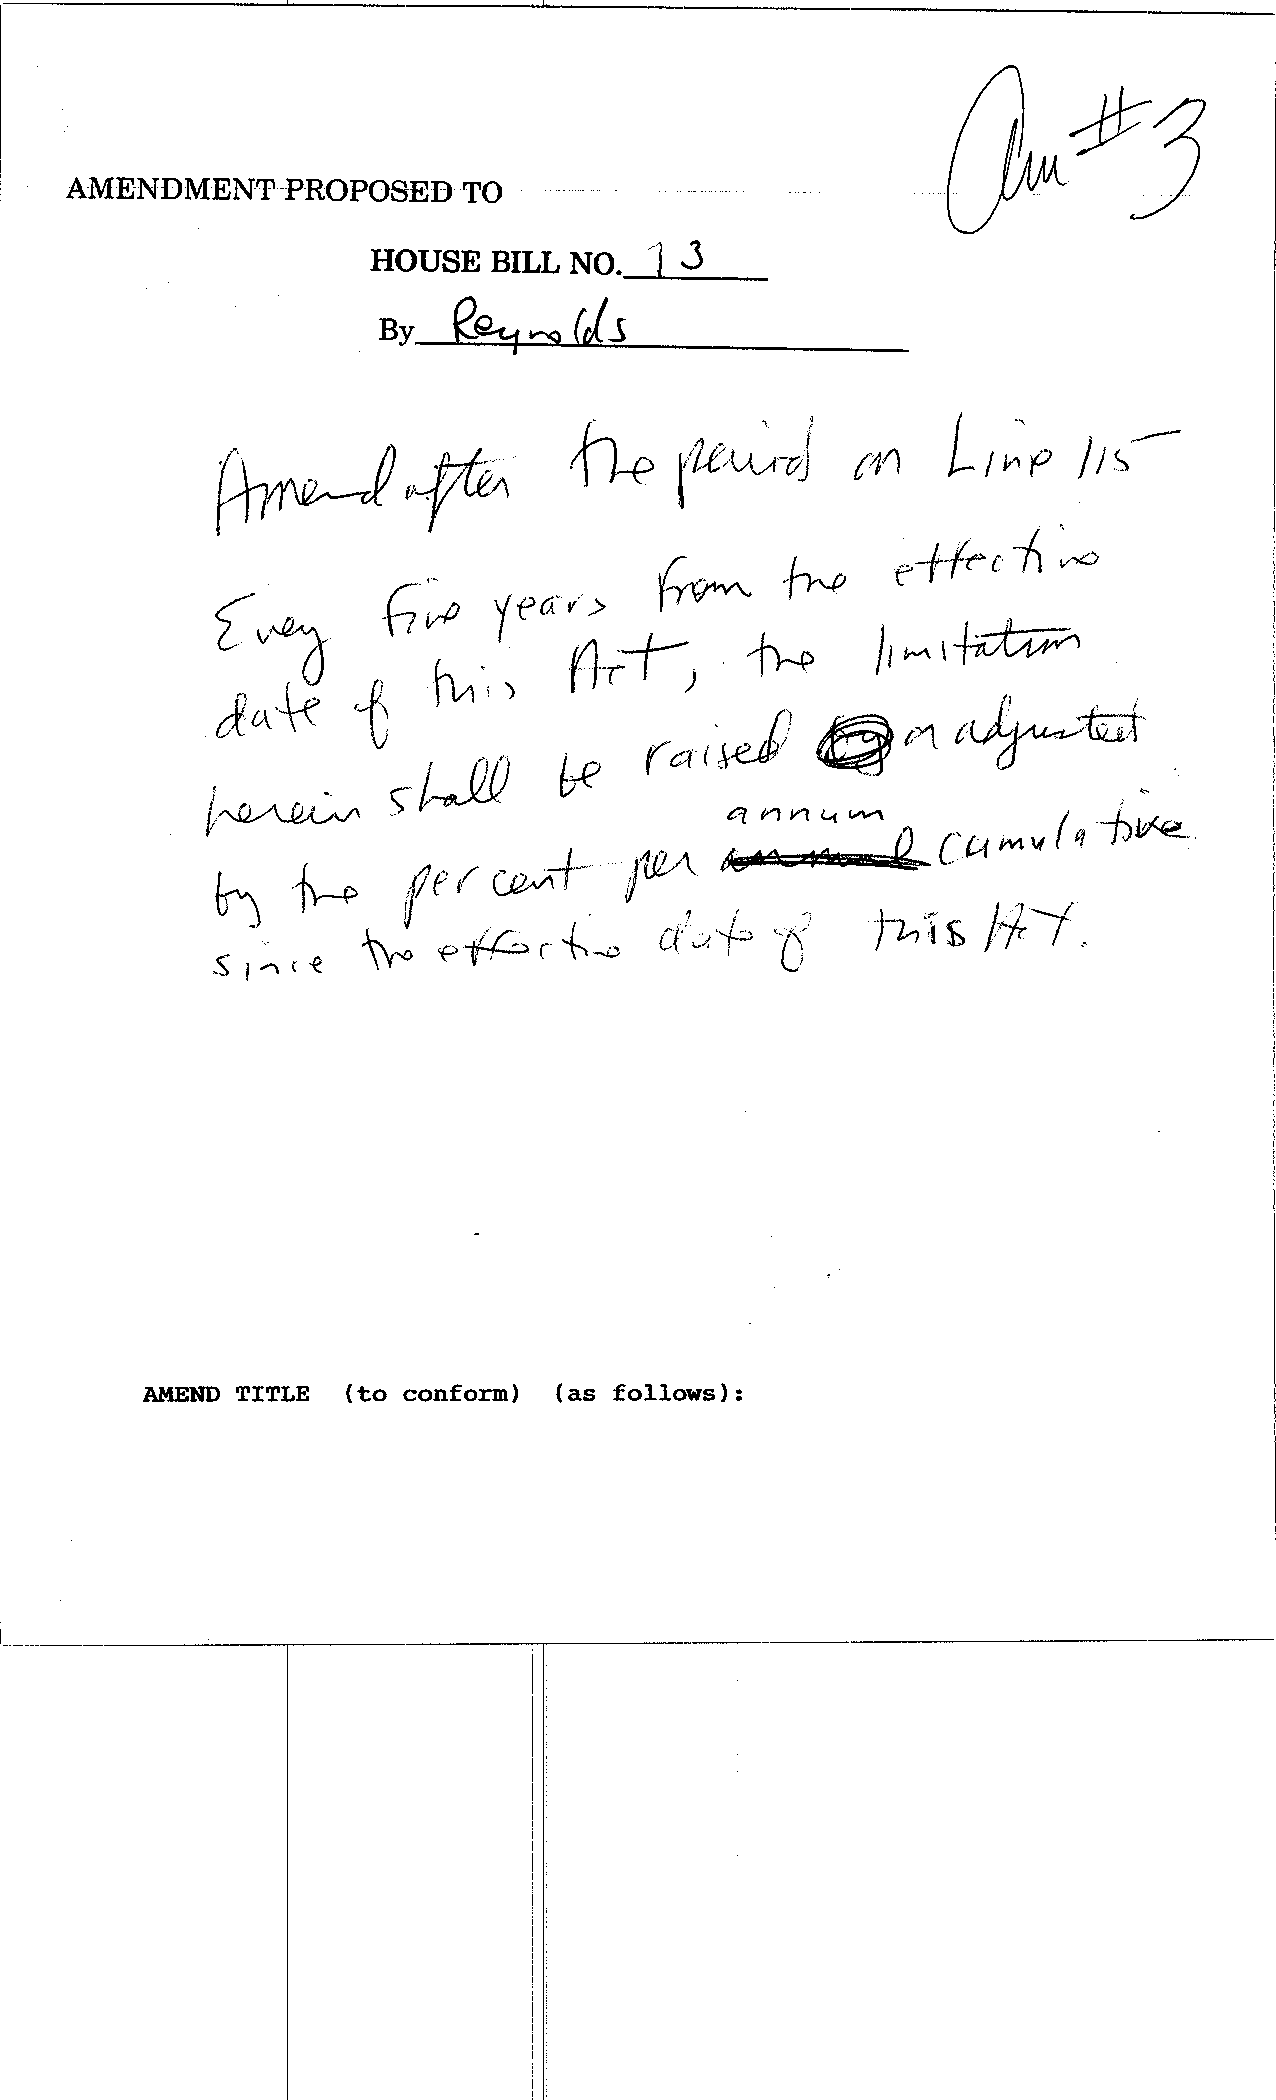 Am #3
AMENDMENT PROPOSED TO
HOUSE BILL NO. 13
By Reynolds
Amend after the period on Line 115
Every five years from the effective
date of this Act, the limitation
herein shall be raised or adjusted
annum
by the per cent per annual cumulative
since the effective date of this Act.
AMEND TITLE (to conform) (as follows):